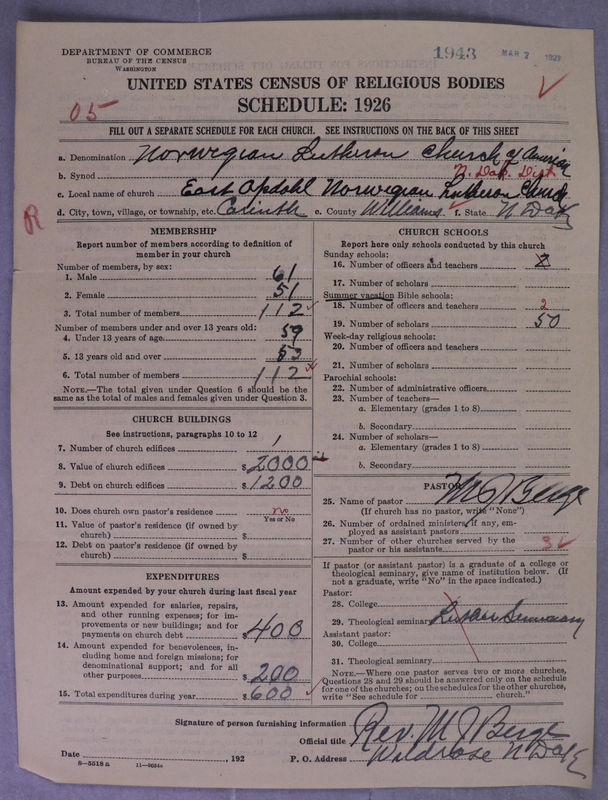 DEPARTMENT OF COMMERCE
BUREAU OF THE CENSUS
WASHINGTON
1943 MAR 2 1927
UNITED STATES CENSUS OF RELIGIOUS BODIES
SCHEDULE: 1926
05
FILL OUT A SEPARATE SCHEDULE FOR EACH CHURCH. SEE INSTRUCTIONS ON THE BACK OF THIS SHEET
a. Denomination Norwegian Lutheran Church of America
b. Synod N. Dak. Dist.
c. Local name of church East Opdahl Norwegian Lutheran Church
d. City, town, village, or township, etc. Corinth e. County Williams f. State N Dak
R
MEMBERSHIP
Report number of members according to definition of
member in your church
Number of members, by sex:
1. Male 61
2. Female 51
3. Total number of members 112
Number of members under and over 13 years old:
4. Under 13 years of age 59
5. 13 years old and over 53
6. Total number of members 112
NOTE.—The total given under Question 6 should be the
same as the total of males and females given under Question 3.
CHURCH BUILDINGS
See instructions, paragraphs 10 to 12
7. Number of church edifices 1
8. Value of church edifices $2000
9. Debt on church edifices $1200
10. Does church own pastor's residence? no
Yes or No
11. Value of pastor's residence (if owned by
church) $
12. Debt on pastor's residence (if owned by
church) $
EXPENDITURES
Amount expended by your church during last fiscal year
13. Amount expended for salaries, repairs,
and other running expenses; for im-
provements or new buildings; and for
payments on church debt $400
14. Amount expended for benevolences, in-
cluding home and foreign missions; for
denominational support; and for all
other purposes $200
15. Total expenditures during year $600
CHURCH SCHOOLS
Report here only schools conducted by this church
Sunday schools:
16. Number of officers and teachers 2
17. Number of scholars
Summer vacation Bible schools:
18. Number of officers and teachers 2
19. Number of scholars 50
Week-day religious schools:
20. Number of officers and teachers
21. Number of scholars
Parochial schools:
22. Number of administrative officers
23. Number of teachers—
a. Elementary (grades 1 to 8)
b. Secondary
24. Number of scholars—
a. Elementary (grades 1 to 8)
b. Secondary
PASTOR
25. Name of pastor M J Berge
(If church has no pastor, write "None")
26. Number of ordained ministers, if any, em-
ployed as assistant pastors
27. Number of other churches served by the
pastor or his assistants 3
If pastor (or assistant pastor) is a graduate of a college or
theological seminary, give name of institution below. (If
not a graduate, write "No" in the space indicated.)
Pastor:
28. College
29. Theological seminary Luther Seminary
Assistant pastor:
30. College
31. Theological seminary
NOTE.—Where one pastor serves two or more churches,
Questions 28 and 29 should be answered only on the schedule
for one of the churches; on the schedules for the other churches,
write "See schedule for church."
Signature of person furnishing information Rev. M J Berge
Official title
Date , 192 P. O. Address Wildrose N Dak
8—5518 a